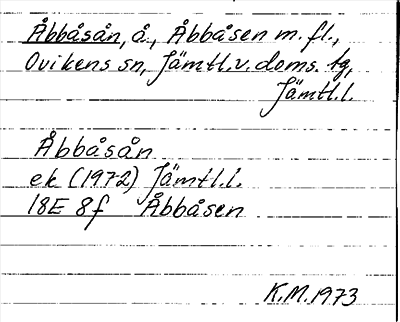 Åbbåsån, å., Åbbåsen m. fl.,
Ovikens sn, Jämtl.v. doms. tg,
Jämtl.l.
Åbbåsån
ek (1972) Jämtl.l.
18E 8f Åbbåsen
K.M. 1973